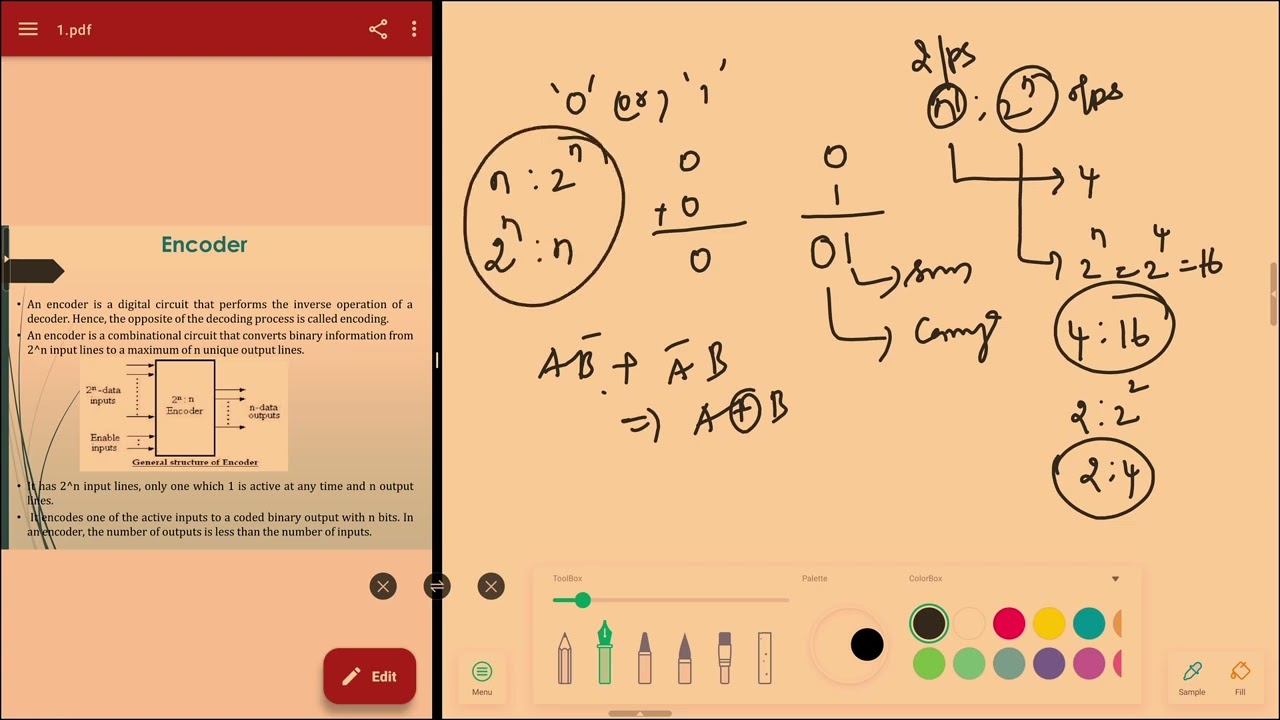 1.pdf
Encoder
• An encoder is a digital circuit that performs the inverse operation of a
decoder. Hence, the opposite of the decoding process is called encoding.
• An encoder is a combinational circuit that converts binary information from
2^n input lines to a maximum of n unique output lines.
2ⁿ-data
inputs
2ⁿ : n
Encoder
n-data
outputs
Enable
inputs
General structure of Encoder
• It has 2^n input lines, only one which 1 is active at any time and n output
lines.
• It encodes one of the active inputs to a coded binary output with n bits. In
an encoder, the number of outputs is less than the number of inputs.
Edit
'0' (or) '1'
n : 2ⁿ
2ⁿ : n
0
+ 0
0
0
1
01
sum
Carry
AB̅ + A̅B
=> A ⊕ B
n : 2ⁿ o/ps
4
2ⁿ = 2⁴ = 16
4 : 16
2 : 2²
2 : 4
ToolBox
Palette
ColorBox
Menu
Sample
Fill